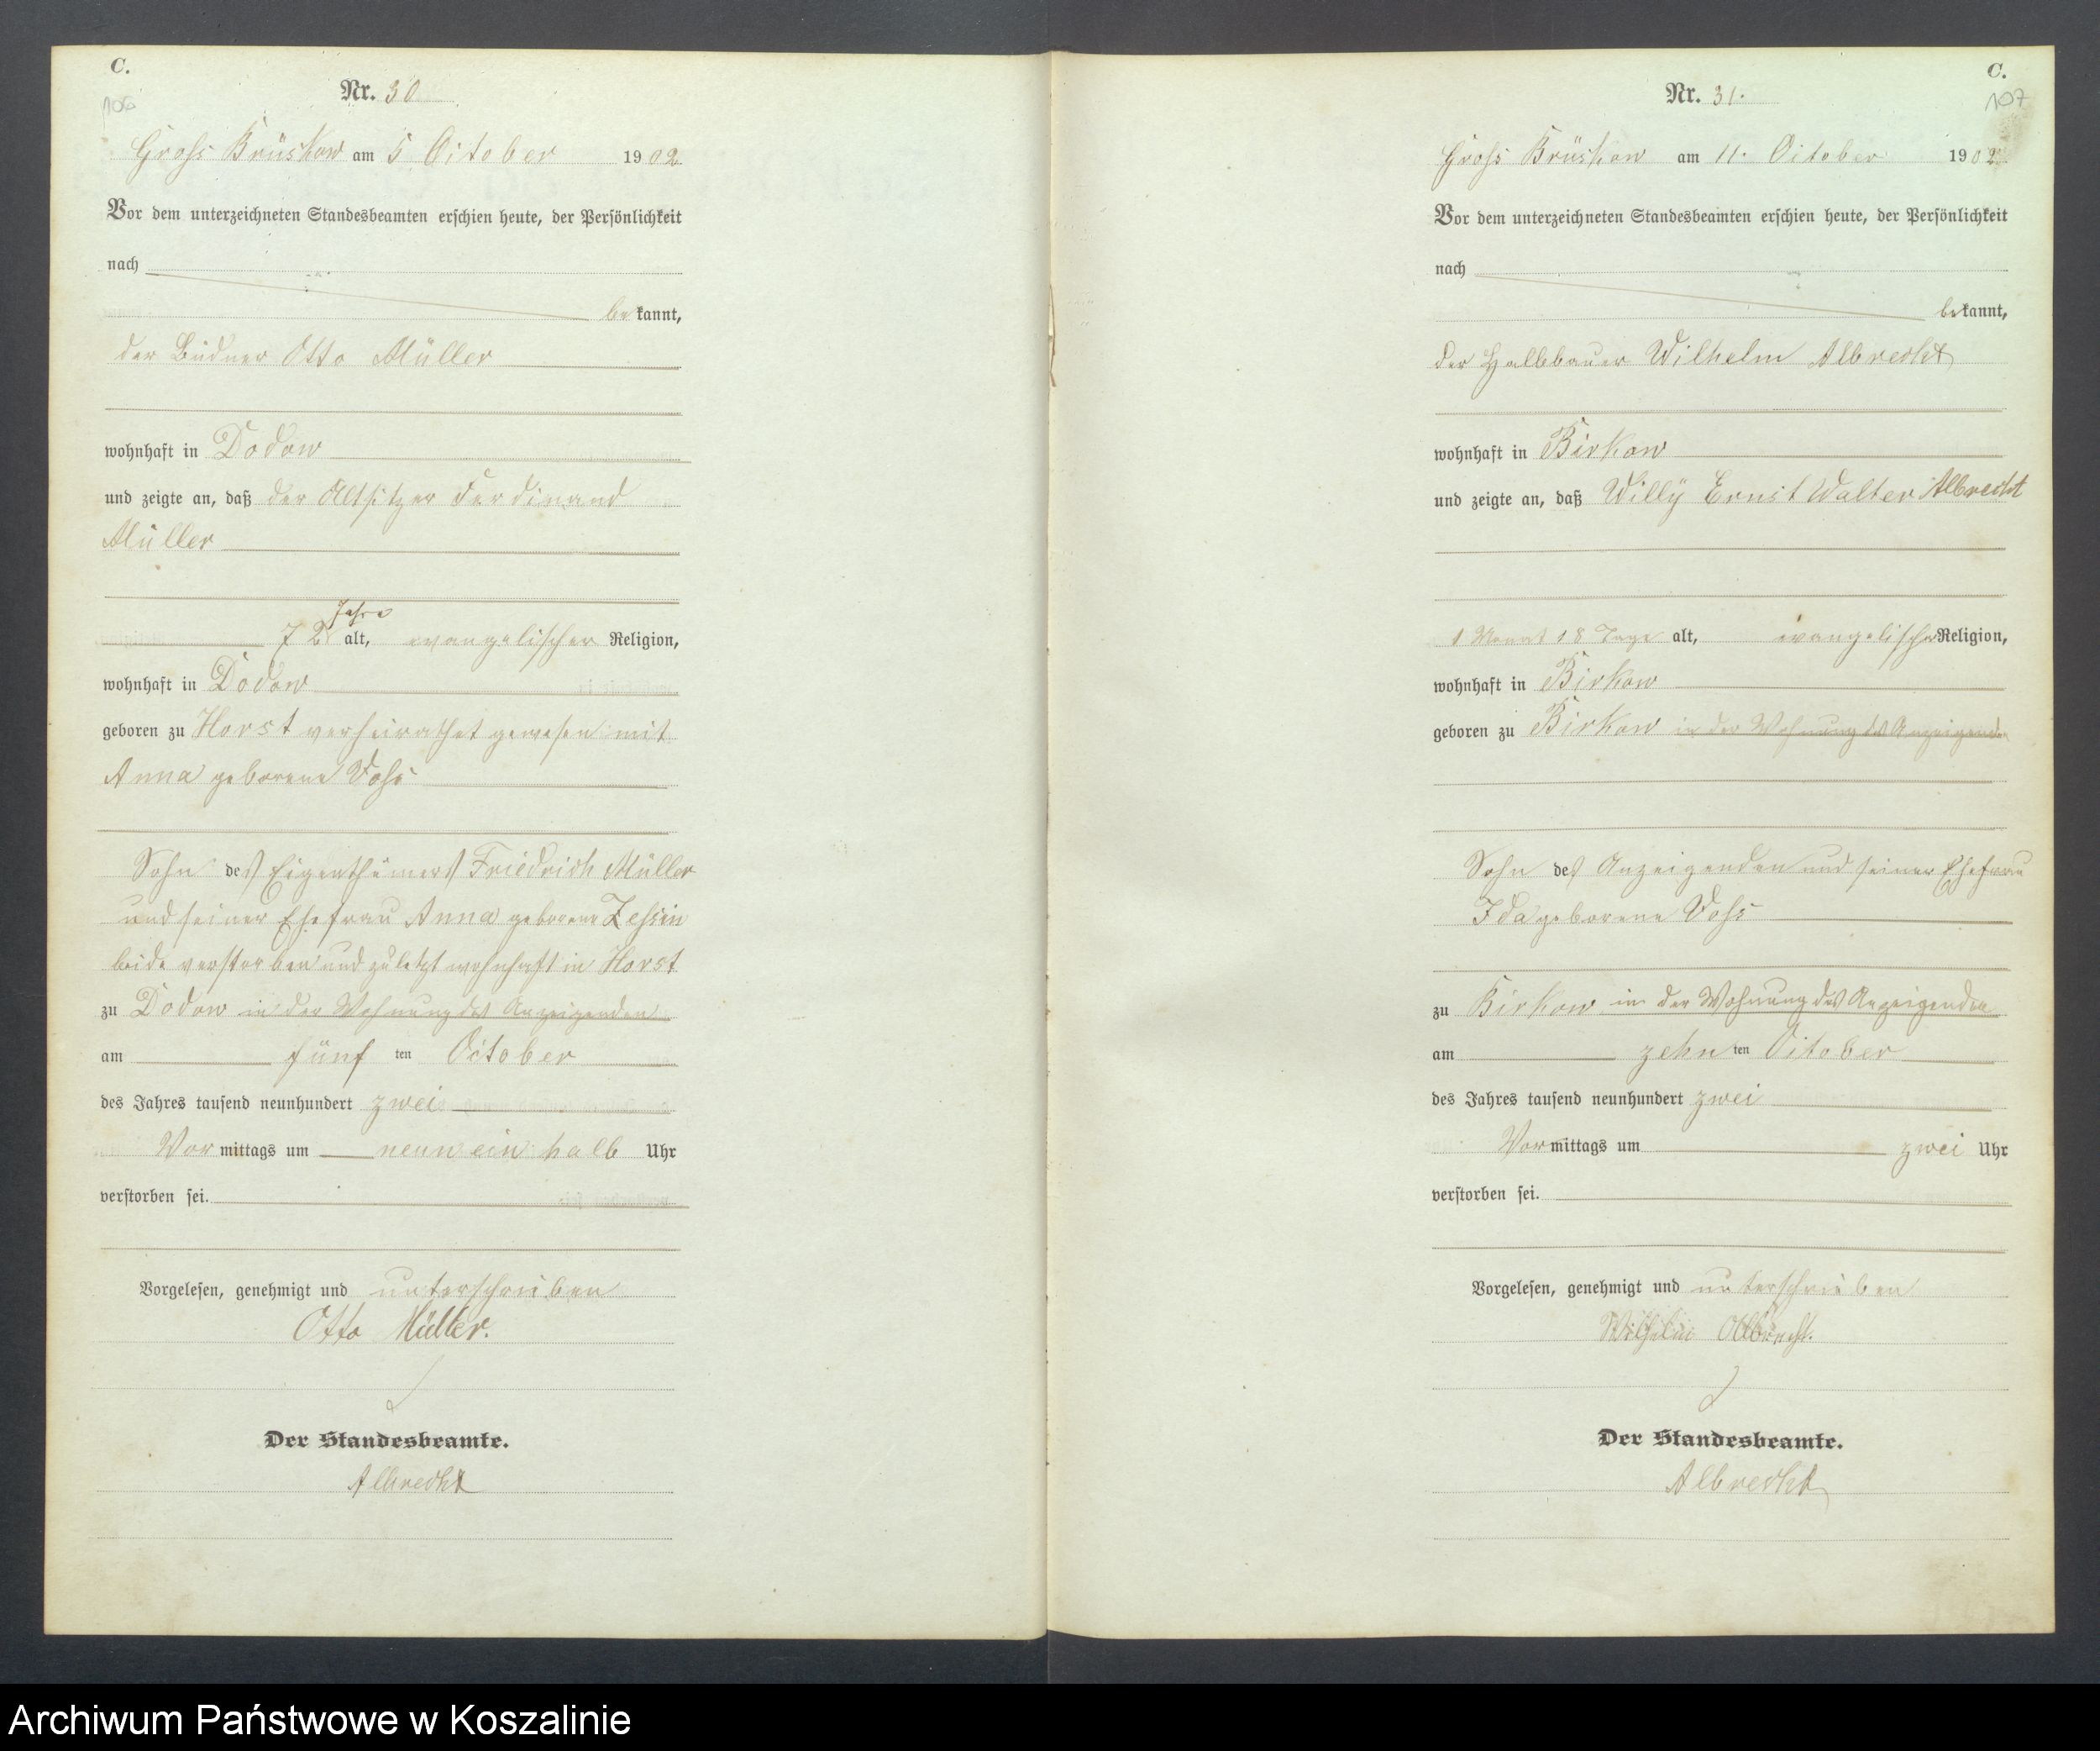 C.
Nr. 30
106
Gross Brüskow am 5 October 1902
Vor dem unterzeichneten Standesbeamten erschien heute, der Persönlichkeit
nach
bekannt,
der Büdner Otto Müller
wohnhaft in Dodow
und zeigte an, daß der Altsitzer Ferdinand
Müller
Jahre
72 alt, evangelischer Religion,
wohnhaft in Dodow
geboren zu Horst verheirathet gewesen mit
Anna geborene Voss
Sohn des Eigenthümers Friedrich Müller
und seiner Ehefrau Anna geborene Zessin
beide verstorben und zuletzt wohnhaft in Horst
zu Dodow in der Wohnung des Anzeigenden
am fünf ten October
des Jahres tausend neunhundert zwei
Vormittags um neun ein halb Uhr
verstorben sei.
Vorgelesen, genehmigt und unterschrieben
Otto Müller.
Der Standesbeamte.
Albrecht
C.
Nr. 31.
107
Gross Brüskow am 11. October 1902
Vor dem unterzeichneten Standesbeamten erschien heute, der Persönlichkeit
nach
bekannt,
der Halbbauer Wilhelm Albrecht
wohnhaft in Birkow
und zeigte an, daß Willy Ernst Walter Albrecht
1 Monat 18 Tage alt, evangelischer Religion,
wohnhaft in Birkow
geboren zu Birkow in der Wohnung des Anzeigenden
Sohn des Anzeigenden und seiner Ehefrau
Ida geborene Voss
zu Birkow in der Wohnung des Anzeigenden
am zehn ten October
des Jahres tausend neunhundert zwei
Vormittags um zwei Uhr
verstorben sei.
Vorgelesen, genehmigt und unterschrieben
Wilhelm Albrecht.
Der Standesbeamte.
Albrecht
Archiwum Państwowe w Koszalinie